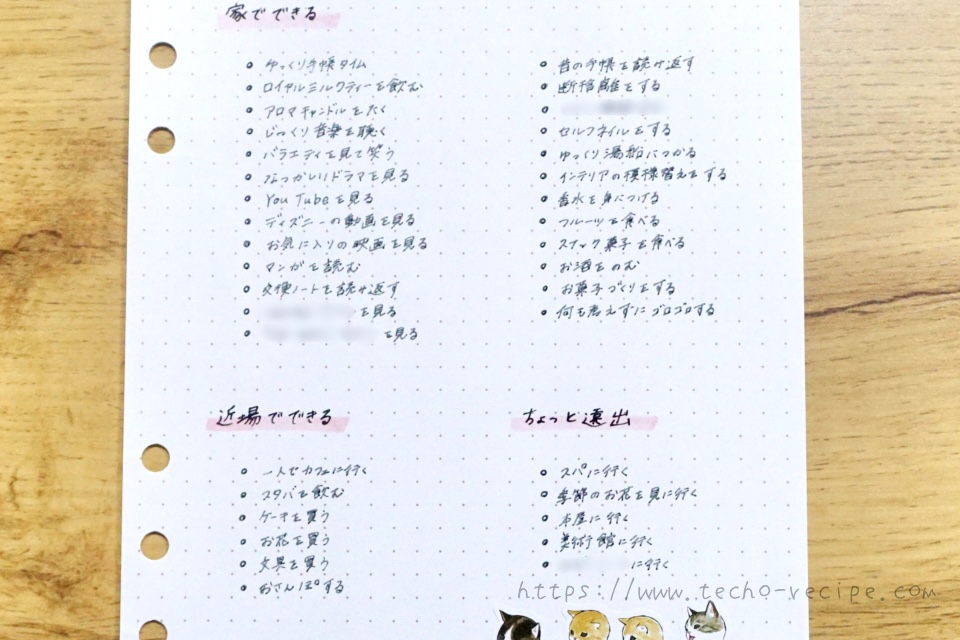 家でできる
ゆっくり手帳タイム
ロイヤルミルクティーを飲む
アロマキャンドルをたく
じっくり音楽を聴く
バラエティを見て笑う
なつかしいドラマを見る
YouTubeを見る
ディズニーの動画を見る
お気に入りの映画を見る
マンガを読む
交換ノートを読み返す
を見る
を見る
昔の手帳を読み返す
断捨離をする
セルフネイルをする
ゆっくり湯船につかる
インテリアの模様替えをする
香水を身につける
フルーツを食べる
スナック菓子を食べる
お酒をのむ
お菓子づくりをする
何も考えずにゴロゴロする
近場でできる
一人でカフェに行く
スタバを飲む
ケーキを買う
お花を買う
文具を買う
おさんぽする
ちょっと遠出
スパに行く
季節のお花を見に行く
本屋に行く
美術館に行く
に行く
https://www.techo-recipe.com